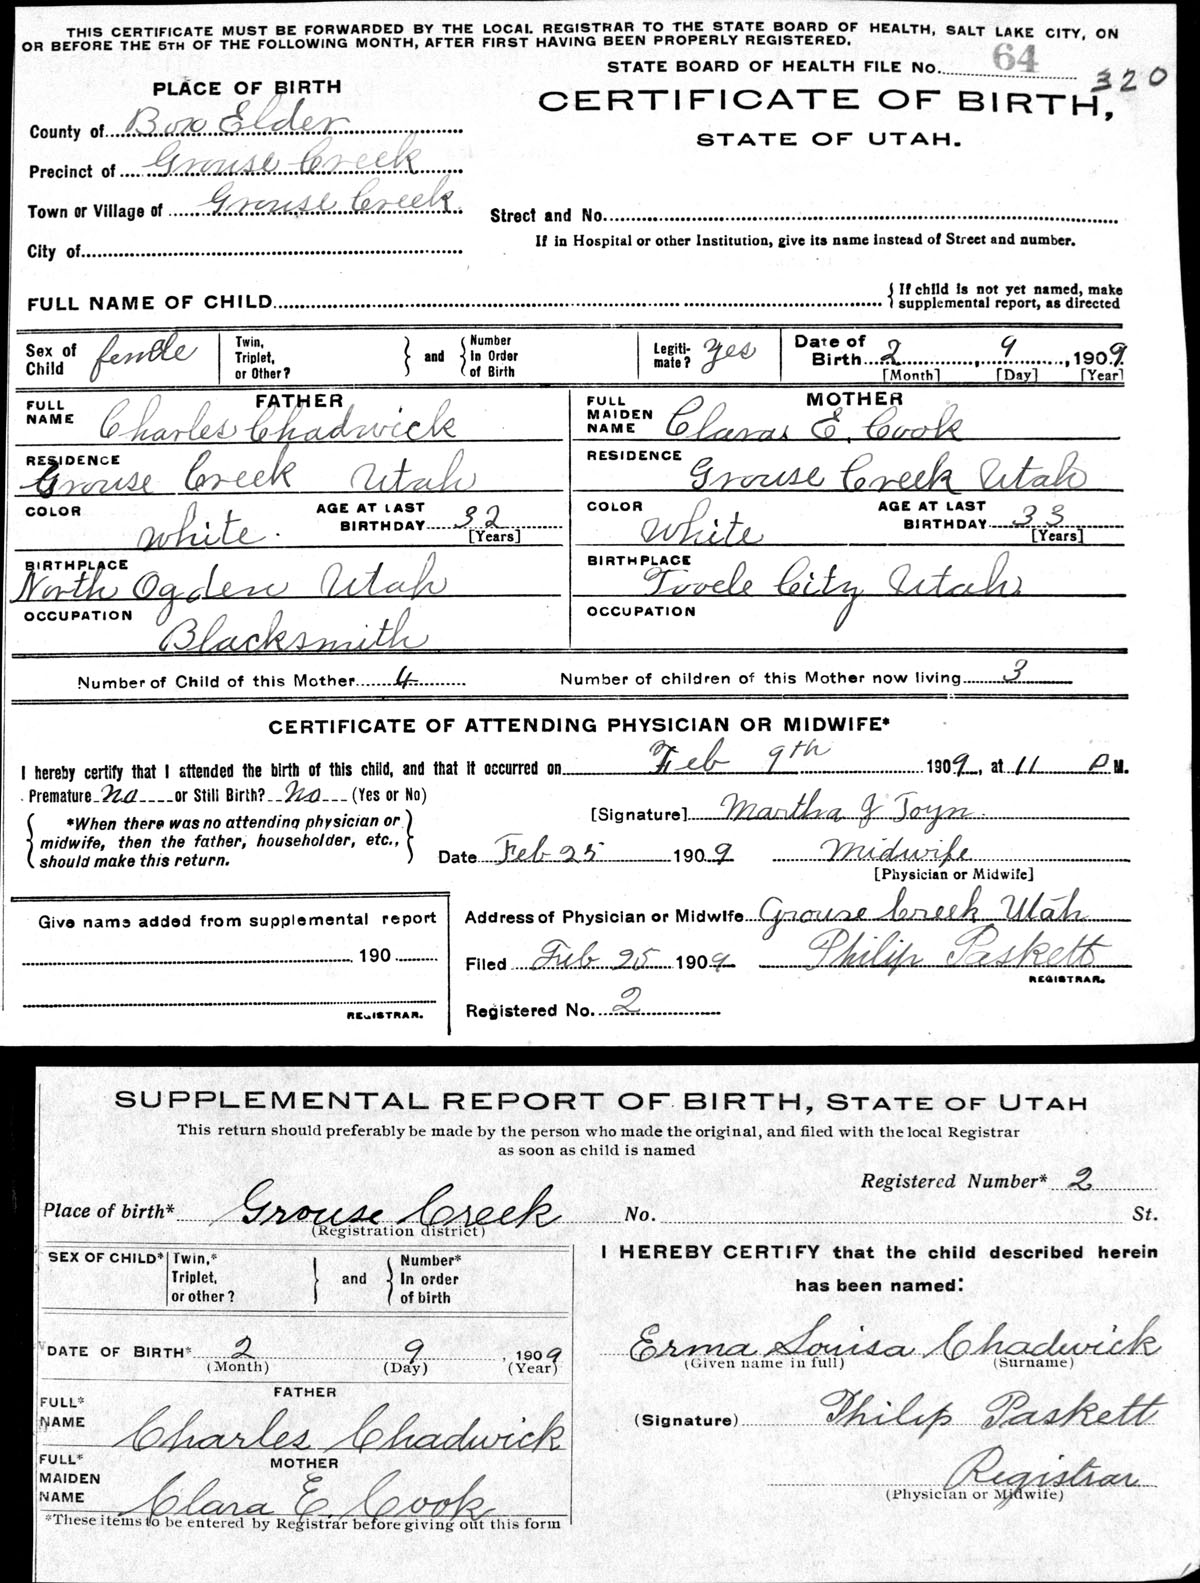 THIS CERTIFICATE MUST BE FORWARDED BY THE LOCAL REGISTRAR TO THE STATE BOARD OF HEALTH, SALT LAKE CITY, ON
OR BEFORE THE 5TH OF THE FOLLOWING MONTH, AFTER FIRST HAVING BEEN PROPERLY REGISTERED.
STATE BOARD OF HEALTH FILE No. 64
320
PLACE OF BIRTH
CERTIFICATE OF BIRTH,
STATE OF UTAH.
County of Box Elder
Precinct of Grouse Creek
Town or Village of Grouse Creek
Street and No.
If in Hospital or other Institution, give its name instead of Street and number.
City of
FULL NAME OF CHILD
If child is not yet named, make
supplemental report, as directed
Sex of Child female
Twin, Triplet, or Other?
and
Number In Order of Birth
Legiti-mate? Yes
Date of Birth 2, 9, 1909
[Month] [Day] [Year]
FATHER
FULL NAME Charles Chadwick
MOTHER
FULL MAIDEN NAME Clara E. Cook
RESIDENCE Grouse Creek Utah
RESIDENCE Grouse Creek Utah
COLOR White
AGE AT LAST BIRTHDAY 32
[Years]
COLOR White
AGE AT LAST BIRTHDAY 33
[Years]
BIRTHPLACE North Ogden Utah
BIRTHPLACE Tooele City Utah
OCCUPATION Blacksmith
OCCUPATION
Number of Child of this Mother 4
Number of children of this Mother now living 3
CERTIFICATE OF ATTENDING PHYSICIAN OR MIDWIFE*
I hereby certify that I attended the birth of this child, and that it occurred on Feb 9th 1909, at 11 P M.
Premature no or Still Birth? No (Yes or No)
*When there was no attending physician or
midwife, then the father, householder, etc.,
should make this return.
[Signature] Martha J Toyn
Date Feb 25 1909 Midwife
[Physician or Midwife]
Give name added from supplemental report
190
REGISTRAR.
Address of Physician or Midwife Grouse Creek Utah
Filed Feb 25 1909 Philip Paskett
REGISTRAR.
Registered No. 2
SUPPLEMENTAL REPORT OF BIRTH, STATE OF UTAH
This return should preferably be made by the person who made the original, and filed with the local Registrar
as soon as child is named
Registered Number* 2
Place of birth* Grouse Creek No. St.
(Registration district)
SEX OF CHILD*
Twin,* Triplet, or other?
and
Number* In order of birth
I HEREBY CERTIFY that the child described herein
has been named:
DATE OF BIRTH* 2 9, 1909
(Month) (Day) (Year)
Erma Louisa Chadwick
(Given name in full) (Surname)
FATHER
FULL* NAME Charles Chadwick
(Signature) Philip Paskett
Registrar
(Physician or Midwife)
MOTHER
FULL* MAIDEN NAME Clara E. Cook
*These items to be entered by Registrar before giving out this form